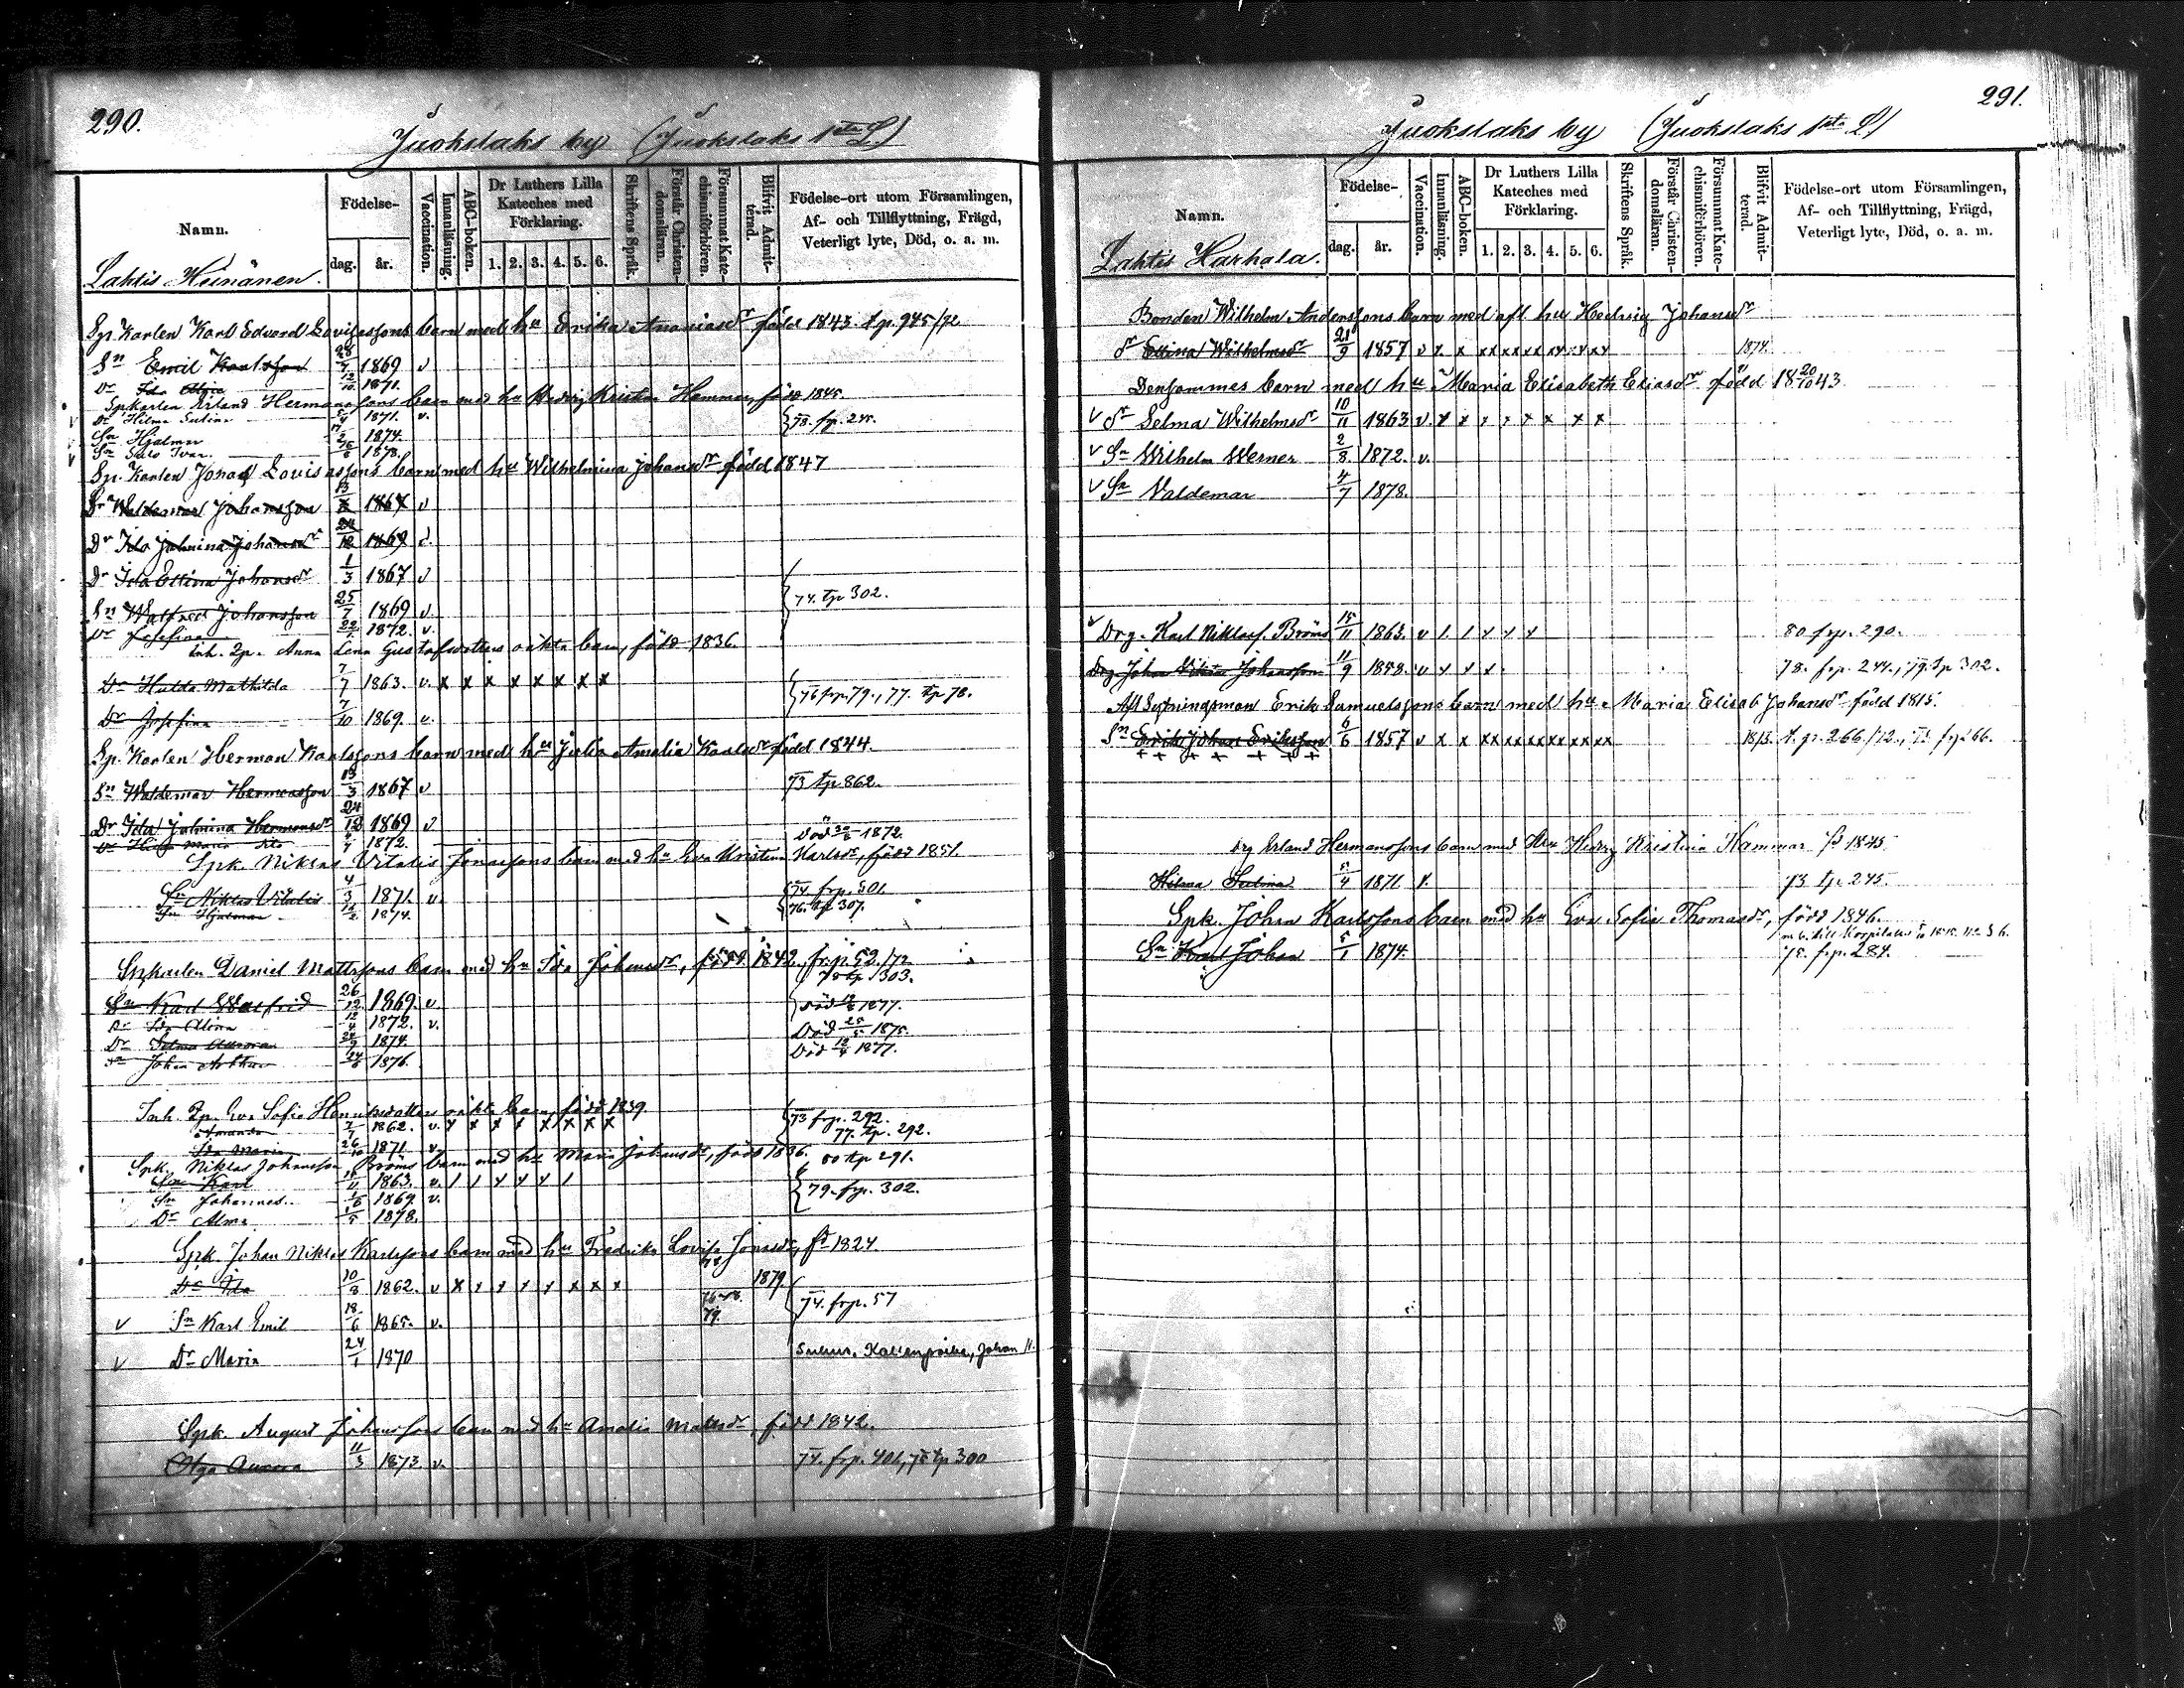 290.
Juokslaks by (Juokslaks 1sta L.)
Namn.
Födelse-
dag.
år.
Vaccination.
Innanläsning.
ABC-boken.
Dr Luthers Lilla Kateches med Förklaring.
1. 2. 3. 4. 5. 6.
Skriftens Språk.
Förstår Christendomsläran.
Försummat Katechismiförhören.
Blifvit Admitterad.
Födelse-ort utom Församlingen,
Af- och Tillflyttning, Frägd,
Veterligt lyte, Död, o. a. m.
Lahtis Heinänen.
Sp. Karlen Karl Edvard Lovisassons barn med hu Erika Ananiasdr född 1843. t.p. 945/72
Sn Emil Karlsson 1869 v
Dr Ida 12/10 1871.
Spkarlen Erland Hermanssons barn med hu Hedvig Kristina Hammar, född 1845.
Dr Hilma Sulina 5/4 1871. v. 73. frp. 245.
Sn Hjalmar 1874.
Sn Ivar. 1878.
Sp. Karlen Jonas Lovisassons barn med hu Wilhelmina Johansdr född 1847
Sn Waldemar Johansson 13 1867 v
Dr Ida Johansdr 24/12 1869 v.
Dr Ida Ellina Johansdr 1/3 1867 v
Sn Walfred Johansson 25/7 1869 v. 74. tp 302.
Dr Josefina 22 1872. v.
Inh. Anna Lena Gustafsdotters oäkta barn, född 1836.
Dr Hulda Mathilda 7/7 1863. v. x x x x x x x x 76 frp. 79., 77. tp 78.
Dr Josefina 7/10 1869. v.
Sp. Karlen Herman Karlssons barn med hu Julia Amalia Karlsdr född 1844.
Sn Waldemar Hermansson 13/3 1867 v 73 tp 862.
Dr Ida Hermansdr 24/12 1869 v
Maria 1872. Död 1872.
Spk. Niklas Vitalis Jonassons barn med hu Eva Kristina Karlsdr, född 1851.
Sn Niklas Vitalis 4/3 1871. v. 74. frp. 501.
Sn Hjalmar 1874. 76. tp 307.
Spkarlen Daniel Mattssons barn med hu Ida Johansdr, född 1842. fr.p 52/72
78 tp. 303.
Sn Karl Walfrid 26/12 1869. v. Död 1877.
Dr Ida Alina 12/4 1872. v.
Dr Selma Aurora 1874. Död 25/5 1875.
Sn Johan Arthur 24 1876. Död 12/4 1877.
Inh. Eva Sofia Henriksdotters oäkta barn, född 1839.
Amanda 1862. v. x x x x x x x x 73 frp. 292.
77. tp. 292.
Ida Maria 26/10 1871. v.
Spk. Niklas Johansson Bröms barn med hu Maria Johansdr, född 1836. 80 tp 291.
Sn Karl 1863. v.
Sn Johannes. 1869. v. 79. frp. 302.
Dr Alma 1878.
Spk. Johan Niklas Karlssons barn med hu Fredrika Lovisa Jonasdr, fd 1824.
Dr Ida 10/8 1862. v x 1879.
74. frp. 57
v Sn Karl Emil 18/6 1865. v. 79.
v Dr Maria 24/1 1870
Spk. August Johanssons barn med hu Amalia Mattsdr, född 1842.
Olga Aurora 11/3 1873. v. 74. frp. 401, 75 tp 300
291.
Juokslaks by (Juokslaks 1sta L.)
Namn.
Födelse-
dag.
år.
Vaccination.
Innanläsning.
ABC-boken.
Dr Luthers Lilla Kateches med Förklaring.
1. 2. 3. 4. 5. 6.
Skriftens Språk.
Förstår Christendomsläran.
Försummat Katechismiförhören.
Blifvit Admitterad.
Födelse-ort utom Församlingen,
Af- och Tillflyttning, Frägd,
Veterligt lyte, Död, o. a. m.
Lahtis Harhala.
Bonden Wilhelm Anderssons barn med afl. hu Hedvig Johansdr
Dr Ellina Wilhelmsdr 21/9 1857 v x x xx xx xx xx xx xx 1874.
Densammes barn med hu Maria Elisabeth Eliasdr född 18 20/10 43.
v Dr Selma Wilhelmsdr 10/11 1863 v. x x x x x x x x
v Sn Wilhelm Werner 2/8 1872. v.
v Sn Valdemar 4/7 1878.
v Drg. Karl Niklass. Bröms 15/11 1863. v 80 frp. 290.
Drg Johan Viktor Johansson 11/9 1858. v 78. frp. 244., 79. tp 302.
Afl Sytningsman Erik Samuelssons barn med hu Maria Elisab Johansdr född 1815.
Sn Erik Johan Eriksson 6/6 1857 v x x xx xx xx xx xx xx 1873. t.p. 266/72., 73. frp 66.
Drg Erland Hermanssons barn med Hu Hedvig Kristina Hammar fd 1845.
Hilma Sulina 5/4 1871 v. 73. tp. 245.
Spk. Johan Karlssons barn med hu Eva Sofia Thomasdr, född 1846.
Sn Karl Johan 5/1 1874. 75. frp. 284.